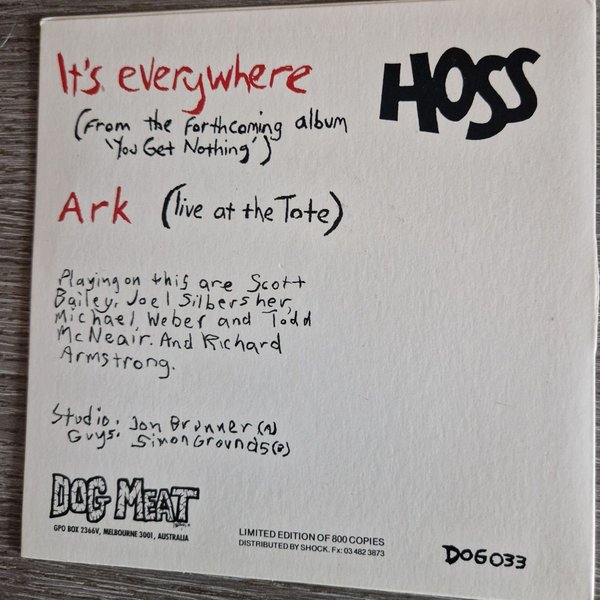 It's everywhere
HOSS
(From the forthcoming album
'You Get Nothing')
Ark (live at the Tote)
Playing on this are Scott
Bailey, Joel Silbersher,
Michael Weber and Todd
McNeair. And Richard
Armstrong.
Studio. Jon Brunner (A)
Guys. Simon Grounds (B)
DOG MEAT
GPO BOX 2366V, MELBOURNE 3001, AUSTRALIA
LIMITED EDITION OF 800 COPIES
DISTRIBUTED BY SHOCK. Fx: 03 482 3873
DOG033